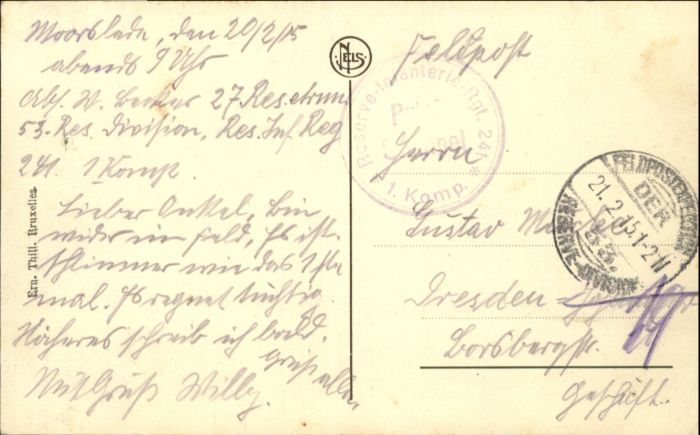 Moorslede, den 20/2/15
abends 9 Uhr
Abs. W. Becker 27. Res.
53. Res. Division, Res. Inf Reg
241 1 Komp.
Lieber Onkel, bin
wider im Feld, Es ist
schlimmer wie das 1ste
mal. Es regnet tüchtig.
Näheres schreib ich bald.
Gruß alle
Mit Gruß Willy.
Ern. Thill. Bruxelles.
NELS
Feldpost
Reserve-Infanterie-Rgt. 241 *
1. Komp.
Herrn
Gustav
Dresden
Borsbergstr.
Geschäft.
FELDPOSTEXPEDITION
DER
21. 2. 15. 1-2 N
53.
RESERVE-DIVISION